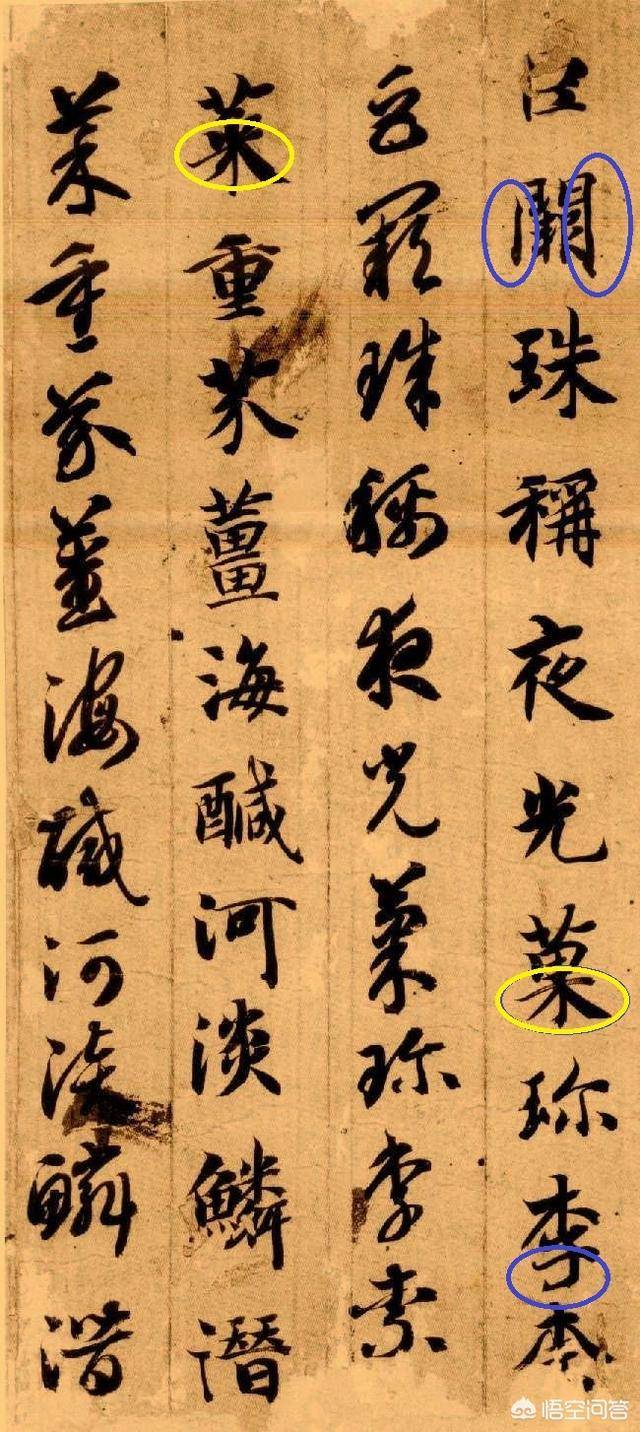 巨闕珠稱夜光菓珎李柰
巨闕珠稱夜光菓珎李柰
菜重芥薑海鹹河淡鱗潛
菜重芥薑海鹹河淡鱗潛
悟空问答